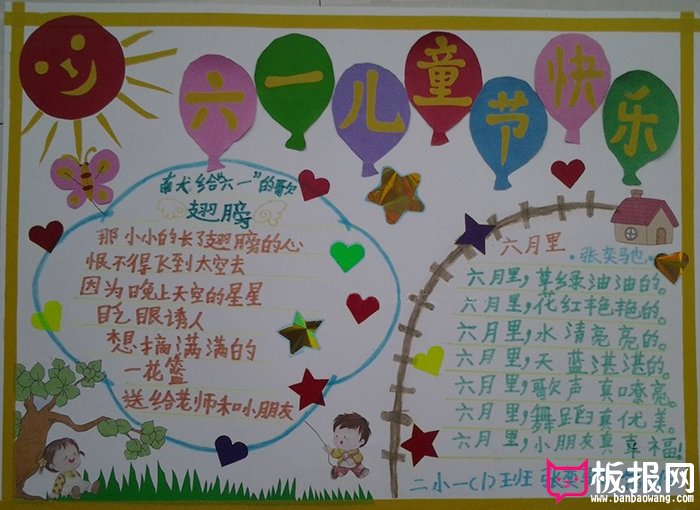 六一儿童节快乐
献给"六一"的歌
翅膀
那小小的长了翅膀的心
恨不得飞到太空去
因为晚上天空的星星
眨眼诱人
想摘满满的
一花篮
送给老师和小朋友
六月里
张奕驰
六月里，草绿油油的。
六月里，花红艳艳的。
六月里，水清亮亮的。
六月里，天蓝湛湛的。
六月里，歌声真嘹亮。
六月里，舞蹈真优美。
六月里，小朋友真幸福！
二小一(1)班 张奕
板报网
www.banbaowang.com